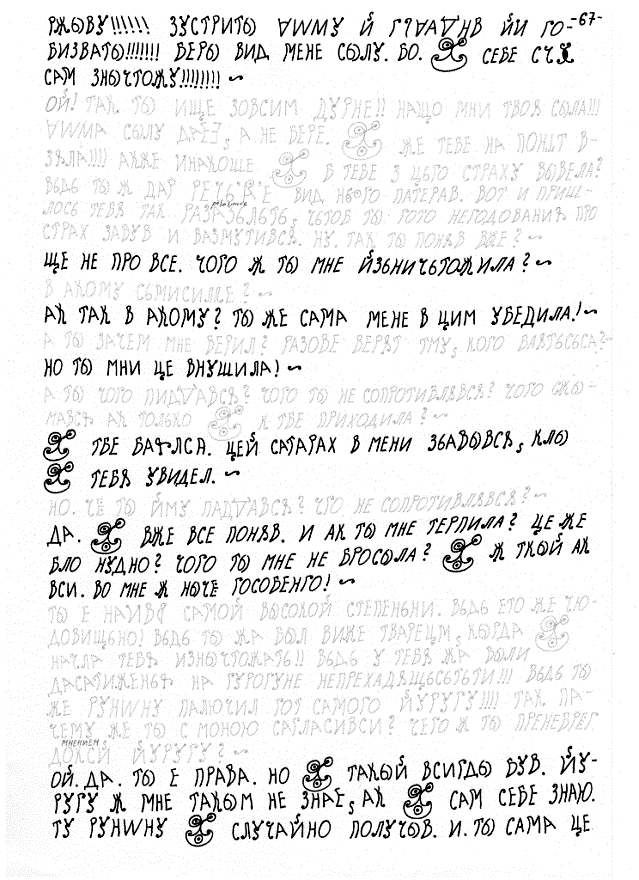 -67-
РЖЫВУ!!!!!! ЗУСТРИТЫ Й ЙИ ГО-
БИЗВАТЫ!!!!!!! БЕРЫ ВИД МЕНЕ СЫЛУ. БО. СЕБЕ
САМ ЗНЫЧТОЖУ!!!!!!!! ~
ОЙ! ТАК. ТЫ ИЩЕ ЗОВСИМ ДУРНЕ!! НАЩО МНИ ТВОЯ СЫЛА!!!
СЫЛУ ДАЕ, А НЕ БЕРЕ. ЖЕ ТЕБЕ НА ПОНЯТ В-
ЗЯЛА!!!! АКЖЕ ИНАКОШЕ В ТЕБЕ З ЦЬГО СТРАХУ ВЫВЕЛА?
ВЬДЬ ТЫ Ж ДАР ВИД НЬОГО ПАТЕРАВ. ВОТ И ПРИШ-
ЛОСЬ ТЕБЯ ТАК ЧТОБ ТЫ ГОТО НЕГОДОВАНИЯ ПРО
СТРАХ ЗАБУВ И ВАЗМУТИВСЯ. НУ. ТАК ТЫ ПОНЯВ ВЖЕ? ~
ЩЕ НЕ ПРО ВСЕ. ЧОГО Ж ТЫ МНЕ ЙЗЬНИЧЬТОЖИЛА? ~
В АКОМУ СЬМИСИЛКЕ? ~
АК ТАК В АКОМУ? ТЫ ЖЕ САМА МЕНЕ В ЦИМ УБЕДИЛА! ~
А ТЫ ЗАЧЕМ МНЕ ВЕРИЛ? РАЗОВЕ ВЕРЯТ ТМУ, КОГО БАЯТЬСЬСА? ~
НО ТЫ МНИ ЦЕ ВНУШИЛА! ~
А ТЫ ЧОГО ПИДДАВСЯ? ЧОГО ТЫ НЕ СОПРОТИВЛЯВСЯ? ЧОГО СЖЫ-
МАВСЯ АК ТОЛЬКО К ТВЕ ПРИХОДИЛА? ~
ТВЕ БАЯЛСЯ. ЦЕЙ САТАРАХ В МЕНИ ЗЬАВЫВСЯ, КЛЫ
ТЕБЯ УВИДЕЛ. ~
НО. ЧЕ ТЫ ЙМУ ПАДДАВСЯ? ЧГО НЕ СОПРОТИВЛЯВСЯ? ~
ДА. ВЖЕ ВСЕ ПОНЯВ. И АК ТЫ МНЕ ТЕРПИЛА? ЦЕ ЖЕ
БЛО НУДНО? ЧОГО ТЫ МНЕ НЕ БРОСЫЛА? Ж ТКЫЙ АК
ВСИ. БО МНЕ Ж НЫЧЕ ГОСОБЕНГО! ~
ТЫ Е САМОЙ ВЫСОКОЙ СТЕПЕНЬНИ. ВЬДЬ ЕТО ЖЕ ЧЮ-
ДОВИЩЬНО! ВЬДЬ ТЫ ЖА БЫЛ НИЖЕ ТВАРЕЦМ, КЫГДА
НАЧЛА ТЕБЯ ИЗНЫЧТОЖАТЬ!! ВЬДЬ У ТЕБЯ ЖА БЫЛИ
ДАСАТИЖЕНЬЯ НА РУРОГУНЕ НЕПРЕХАДЯЩЬСЬТЬТИ!!! ВЬДЬ ТЫ
ЖЕ РУНИНУ ПАЛЮЧИЛ ГОТ САМОГО ЙУРУГУ!!!! ТАК ПА-
ЧЕМУ ЖЕ ТЫ С МОНОЮ САГЛАСИВСИ? ЧЕГО Ж ТЫ ПРЕНЕБРЕГ
МНЕНИЕМ
ДОКСИ ЙУРУГУ? ~
ОЙ. ДА. ТЫ Е ПРАВА. НО ТАКЫЙ ВСИГДЫ БУВ. ЙУ-
РУГУ Ж МНЕ ТАКЫМ НЕ ЗНАЕ, АК САМ СЕБЕ ЗНАЮ.
ТУ РУНИНУ СЛУЧАЙНО ПОЛУЧЫВ. И. ТЫ САМА ЦЕ